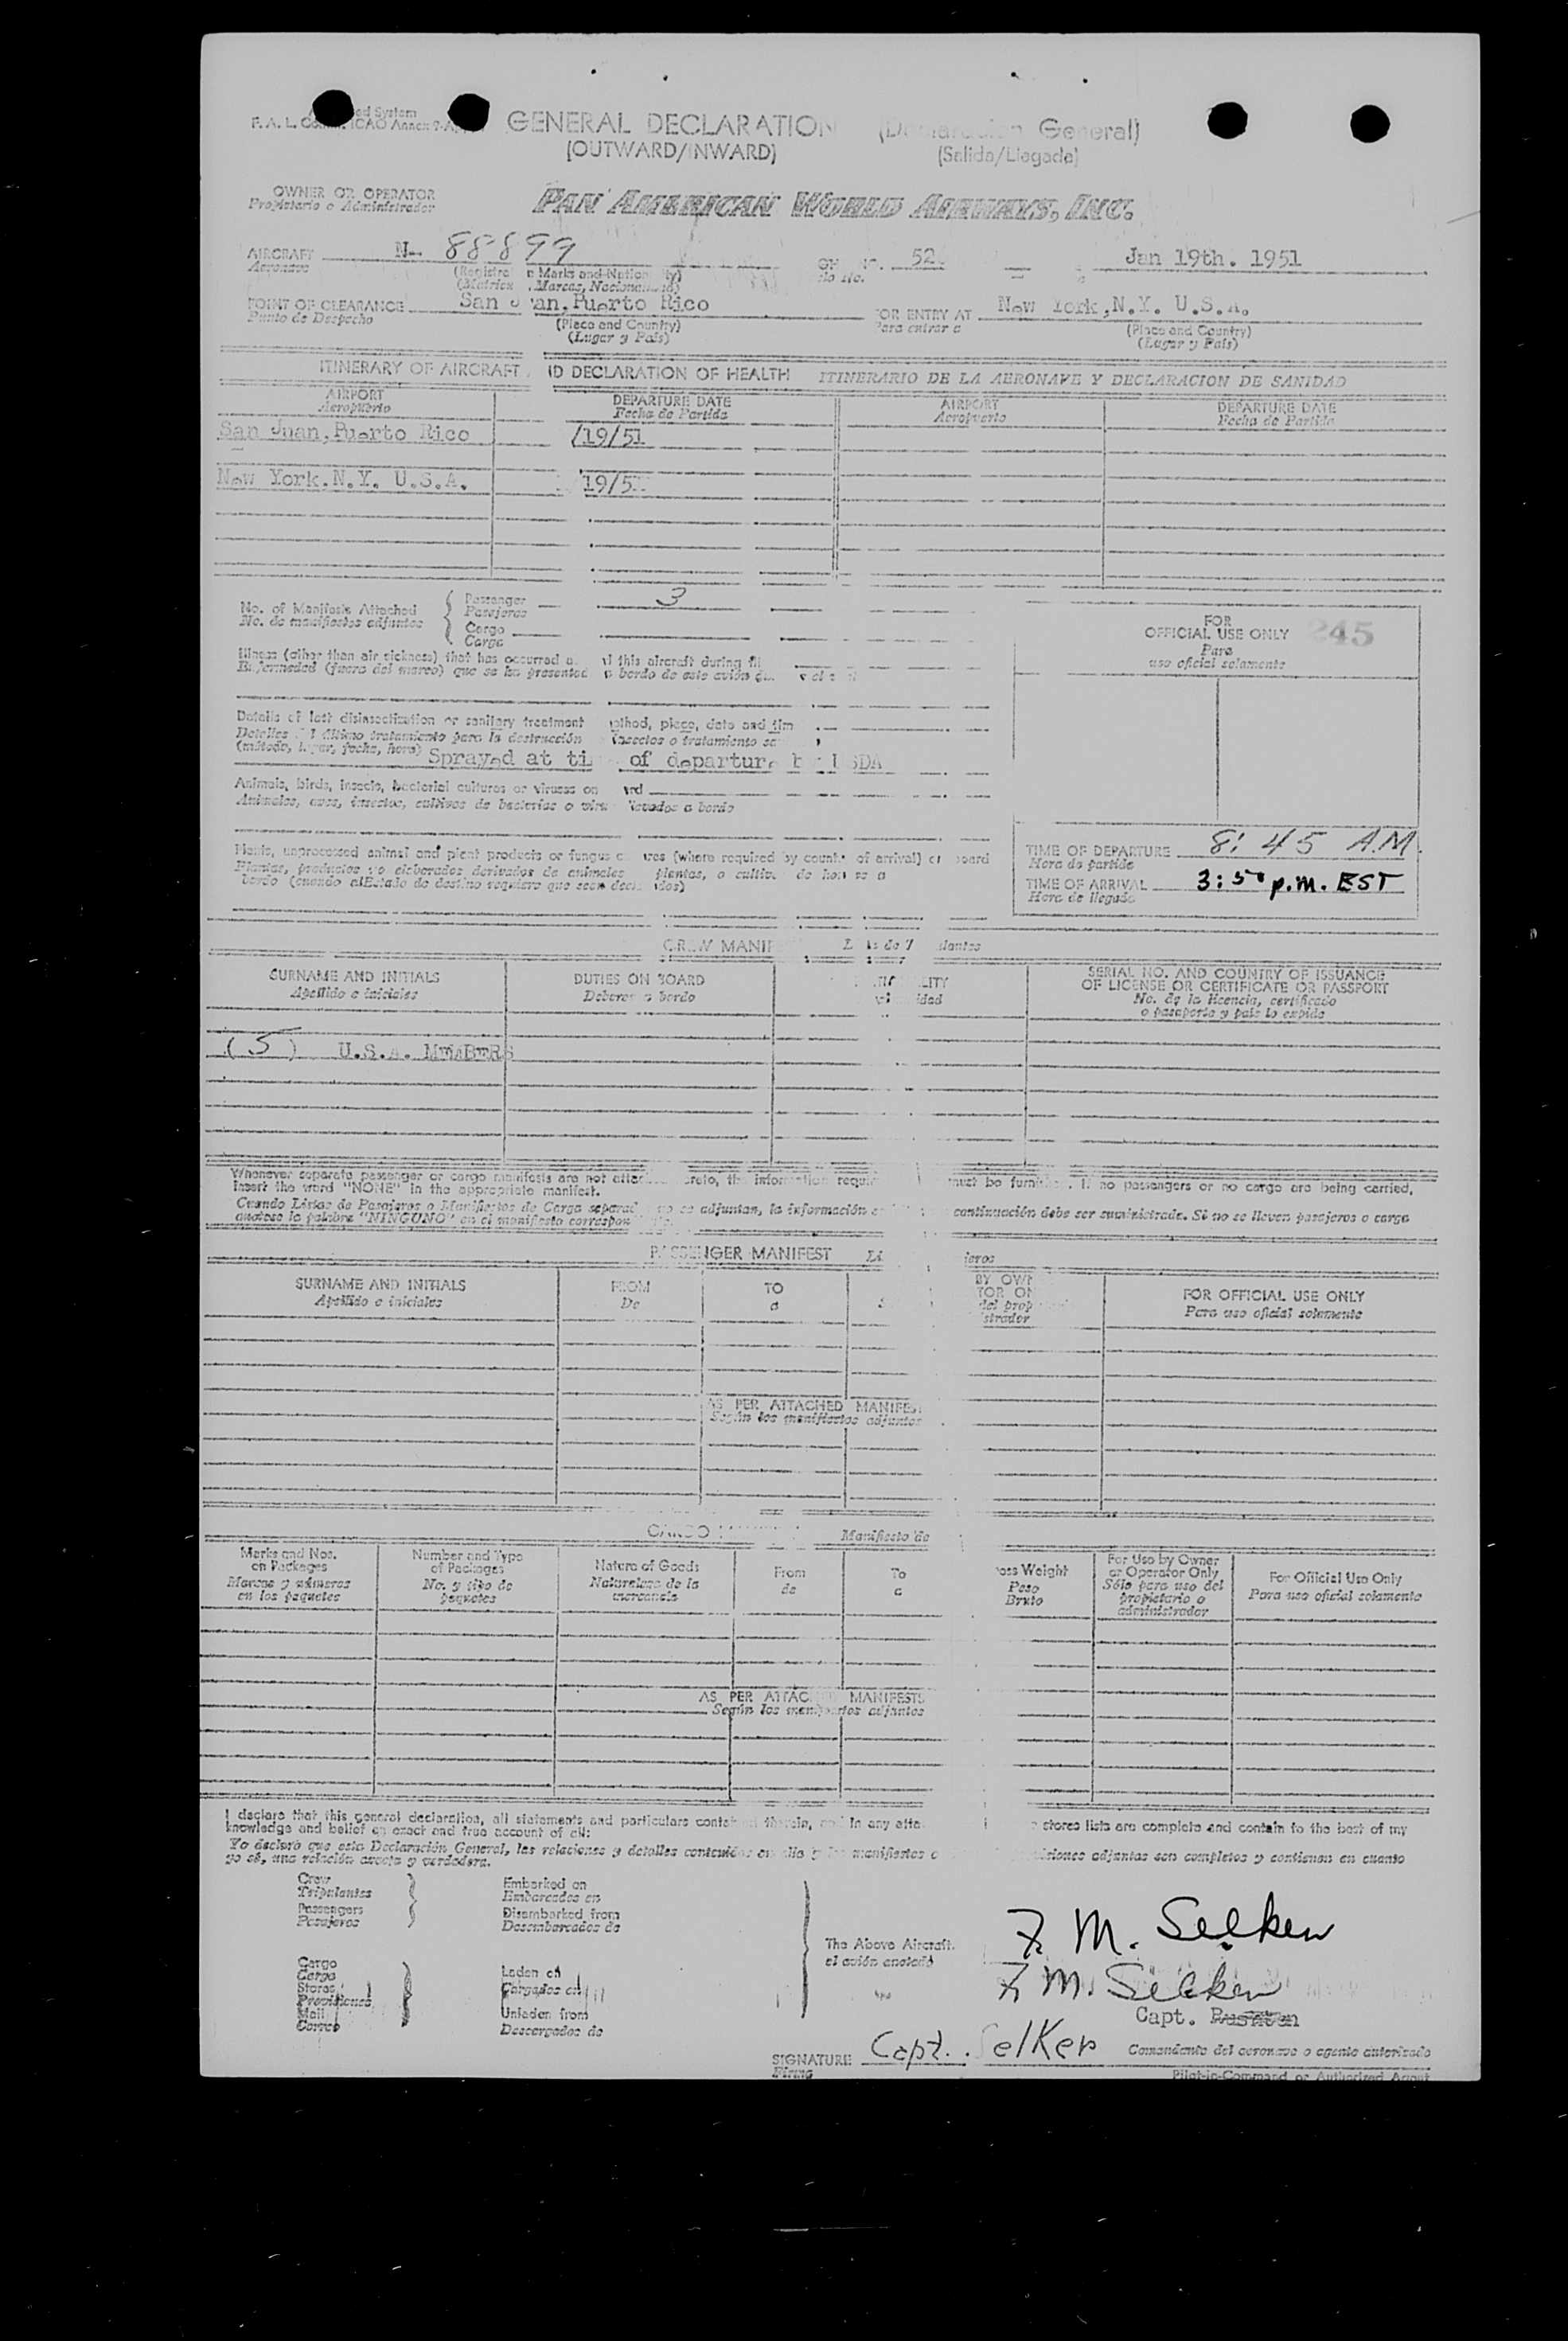 GENERAL DECLARATION (Declaracion General)
(OUTWARD/INWARD) (Salida/Llegada)
OWNER OR OPERATOR
Propietario o Administrador
PAN AMERICAN WORLD AIRWAYS, INC.
AIRCRAFT N- 88899 52 Jan 19th. 1951
Aeronave
POINT OF CLEARANCE San Juan, Puerto Rico FOR ENTRY AT New York, N.Y. U.S.A.
Punto de Despacho (Place and Country) Para entrar a (Place and Country)
(Lugar y País) (Lugar y País)
ITINERARY OF AIRCRAFT DECLARATION OF HEALTH ITINERARIO DE LA AERONAVE Y DECLARACION DE SANIDAD
AIRPORT DEPARTURE DATE AIRPORT DEPARTURE DATE
Aeropuerto Fecha de Partida Aeropuerto Fecha de Partida
San Juan, Puerto Rico /19/51
New York.N.Y. U.S.A. 19/5
No. of Manifests Attached
No. de manifiestos adjuntos
Passenger 3
Pasajeros
Cargo
Carga
FOR
OFFICIAL USE ONLY 245
Para
uso oficial solamente
Illness (other than air sickness) that has occurred this aircraft during
Enfermedad (fuera del mareo) que se ha presentado a bordo de este avión
Details of last disinsectization or sanitary treatment method, place, date and
Detalles último tratamiento para la destrucción insectos o tratamiento
(método, lugar, fecha, hora) Sprayed at of departure by USDA
Animals, birds, insects, bacterial cultures or viruses on
Animales, aves, insectos, cultivos de bacterias o llevados a bordo
Plants, unprocessed animal and plant products or fungus (where required by of arrival) board
Plantas, productos no elaborados derivados de animales plantas, o
bordo (cuando el Estado de destino requiere que sean
TIME OF DEPARTURE 8:45 A.M.
Hora de partida
TIME OF ARRIVAL 3:50 p.m. EST
Hora de llegada
CREW
SURNAME AND INITIALS DUTIES ON BOARD SERIAL NO. AND COUNTRY OF ISSUANCE
Apellido e iniciales Deberes a bordo OF LICENSE OR CERTIFICATE OR PASSPORT
No. de la licencia, certificado
o pasaporte y país lo expide
(5) U.S.A. MEMBERS
Whenever separate passenger or cargo manifests are not the information must be no passengers or no cargo are being carried,
insert the word "NONE" in the appropriate manifest.
Cuando Listas de Pasajeros o Manifiestos de Carga se adjuntan, la información continuación debe ser suministrada. Si no se lleven pasajeros o carga
anótese la palabra "NINGUNO" en el manifiesto
PASSENGER MANIFEST
SURNAME AND INITIALS FROM TO FOR OFFICIAL USE ONLY
Apellido e iniciales De a Para uso oficial solamente
AS PER ATTACHED
Según los manifiestos adjuntos
CARGO Manifiesto de
Marks and Nos. Number and Type Nature of Goods From To Weight For Use by Owner For Official Use Only
on Packages of Packages Naturaleza de la de a Peso or Operator Only Para uso oficial solamente
Marcas y números No. y tipo de mercancía Bruto Sólo para uso del
en los paquetes paquetes propietario o
administrador
AS PER MANIFESTS
Según los adjuntos
I declare that this general declaration, all statements and particulars therein, in any stores lists are complete and contain to the best of my
knowledge and belief an exact and true account of all:
Yo declaro que esta Declaración General, las relaciones y detalles contenidos manifiestos adjuntas son completos y contienen en cuanto
yo sé, una relación exacta y verdadera.
Crew Embarked on
Tripulantes Embarcados en
Passengers Disembarked from
Pasajeros Desembarcados de
The Above Aircraft.
el avión anotado
Cargo Laden on
Carga Cargados en
Stores
Provisiones
Mail Unladen from
Correo Descargados de
F. M. Selken
F. M. Selken
Capt.
SIGNATURE Capt. Selken Comandante del aeronave o agente autorizado
Firma Pilot-in-Command or Authorized Agent